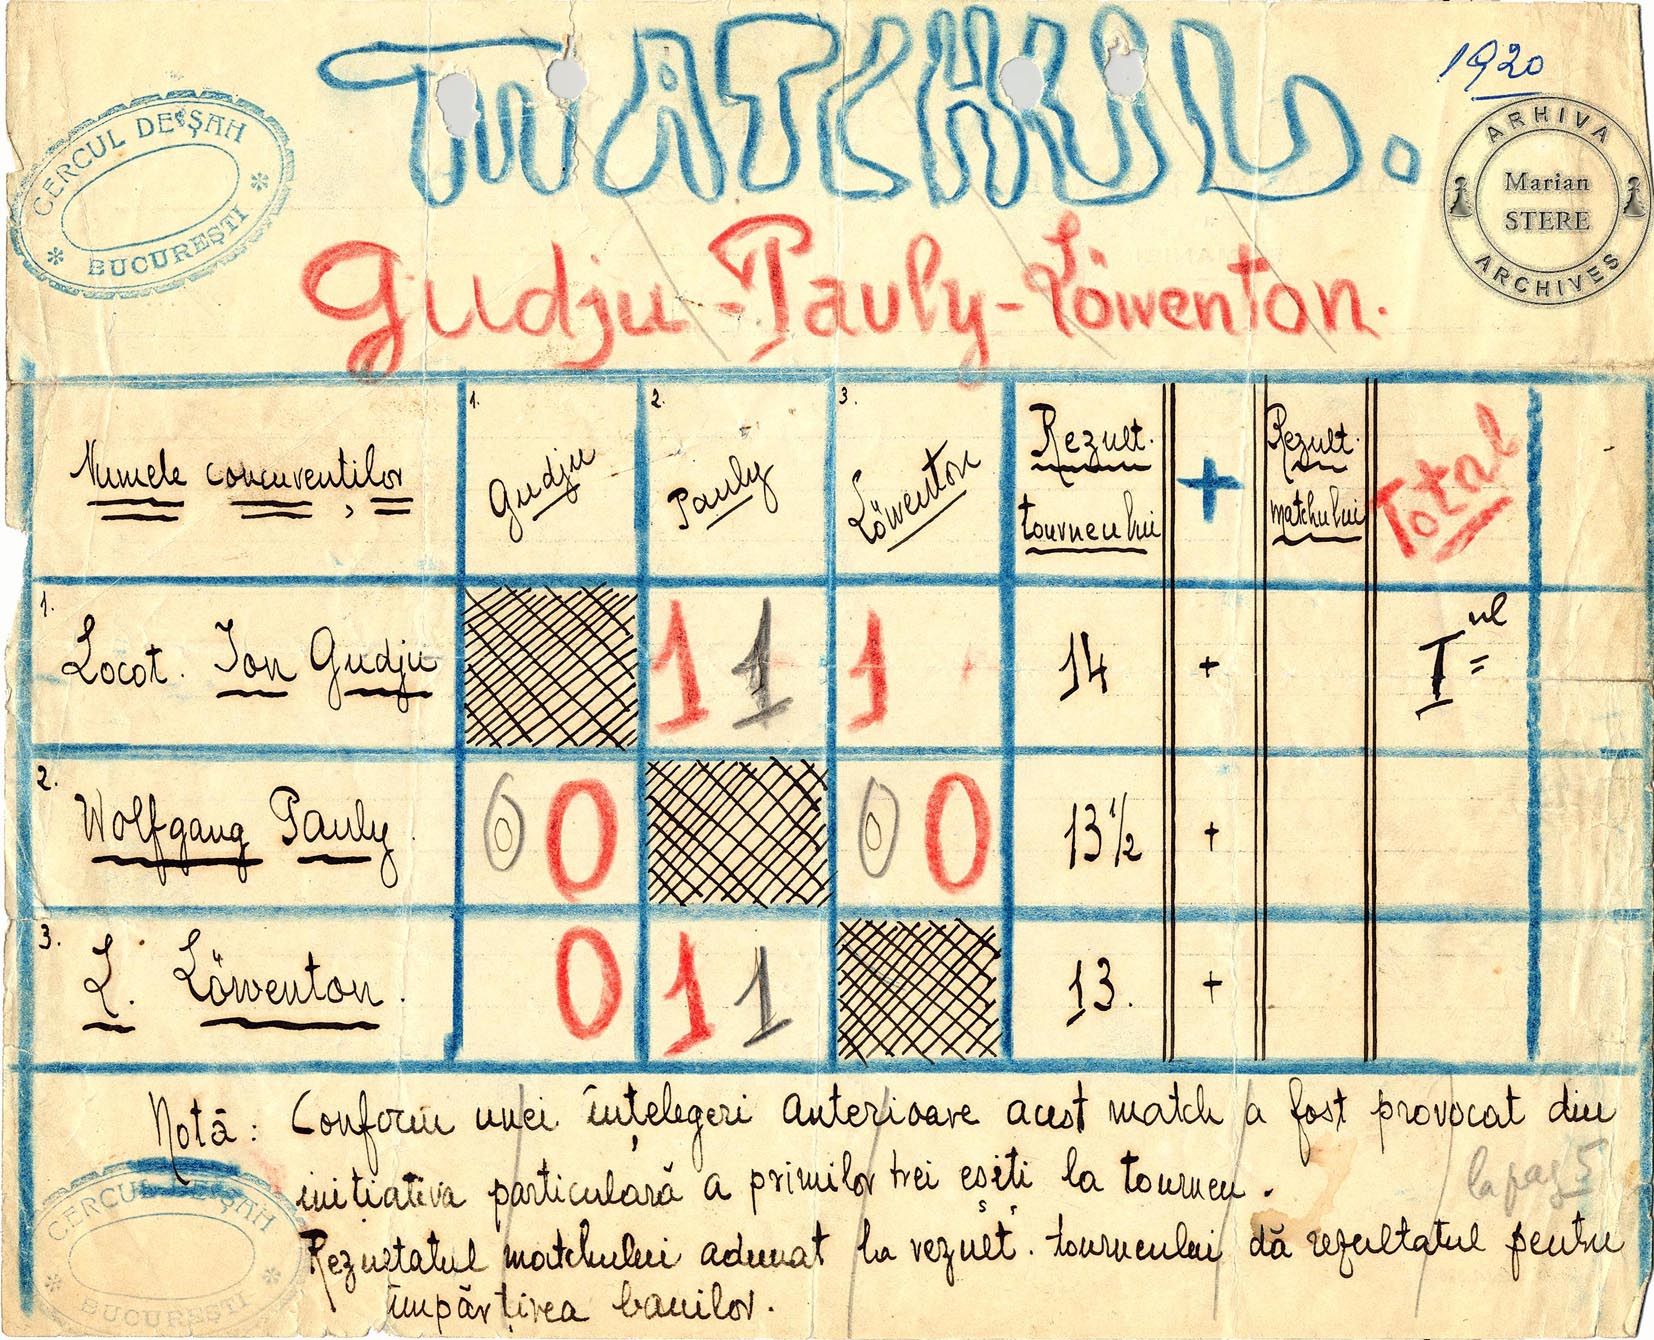 MATCHUL.
1920
CERCUL DE ȘAH
BUCUREȘTI
ARHIVA
Marian
STERE
ARCHIVES
Gudju-Pauly-Löwenton.
Numele concurenților
1. Gudju
2. Pauly
3. Löwenton
Rezult.
tourneului
+
Rezult.
matchului
Total
1. Locot. Ion Gudju
1 1
1
14
+
I ul
2. Wolfgang Pauly.
0 0
0 0
13½
+
3. L. Löwenton.
0
1 1
13.
+
Notă: Conform unei înțelegeri anterioare acest match a fost provocat din
inițiativa particulară a primilor trei eșiți la tourneu.
la pag 5
Rezultatul matchului adunat la rezult. tourneului dă rezultatul pentru
împărțirea banilor.
CERCUL DE ȘAH
BUCUREȘTI